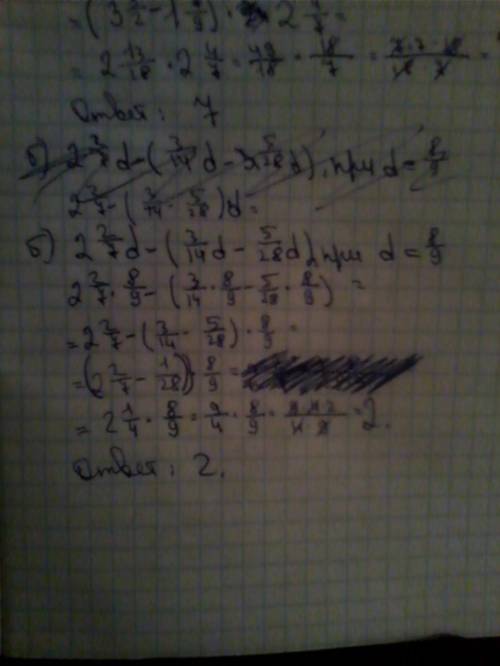 = (3 1/2 - 1 ) · 2 4/7 =
= 2 13/18 · 2 4/7 = 49/18 · 18/7 =
Ответ: 7
б) 2 2/7 d - (3/14 d - 5/28 d), при d = 8/9
2 2/7 - (3/14 - 5/28) d =
б) 2 2/7 d - (3/14 d - 5/28 d), при d = 8/9
2 2/7 · 8/9 - (3/14 · 8/9 - 5/28 · 8/9) =
= 2 2/7 - (3/14 - 5/28) · 8/9 =
= (2 2/7 - 1/28) · 8/9 =
= 2 1/4 · 8/9 = 9/4 · 8/9 = = 2.
Ответ: 2.